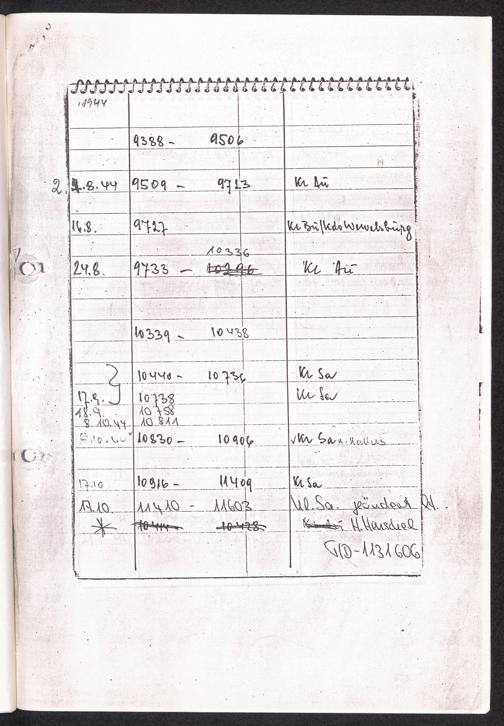 1944
9388 - 9506
2.8.44 9509 - 9713 Kl Au
16.8. 9727 Kl Bu/Kdo Wewelsburg
10336
24.8. 9733 - 10296 Kl Au
10339 - 10438
10440 - 10736 Kl Sa
17.9. 10738 Kl Sa
18.9. 10758
8.10.44 10811
10830 - 10906 Kl Sa
17.10 10916 - 11409 Kl Sa
17.10. 11410 - 11603 Kl. Sa. geändert
* 10428
T/D-1131606